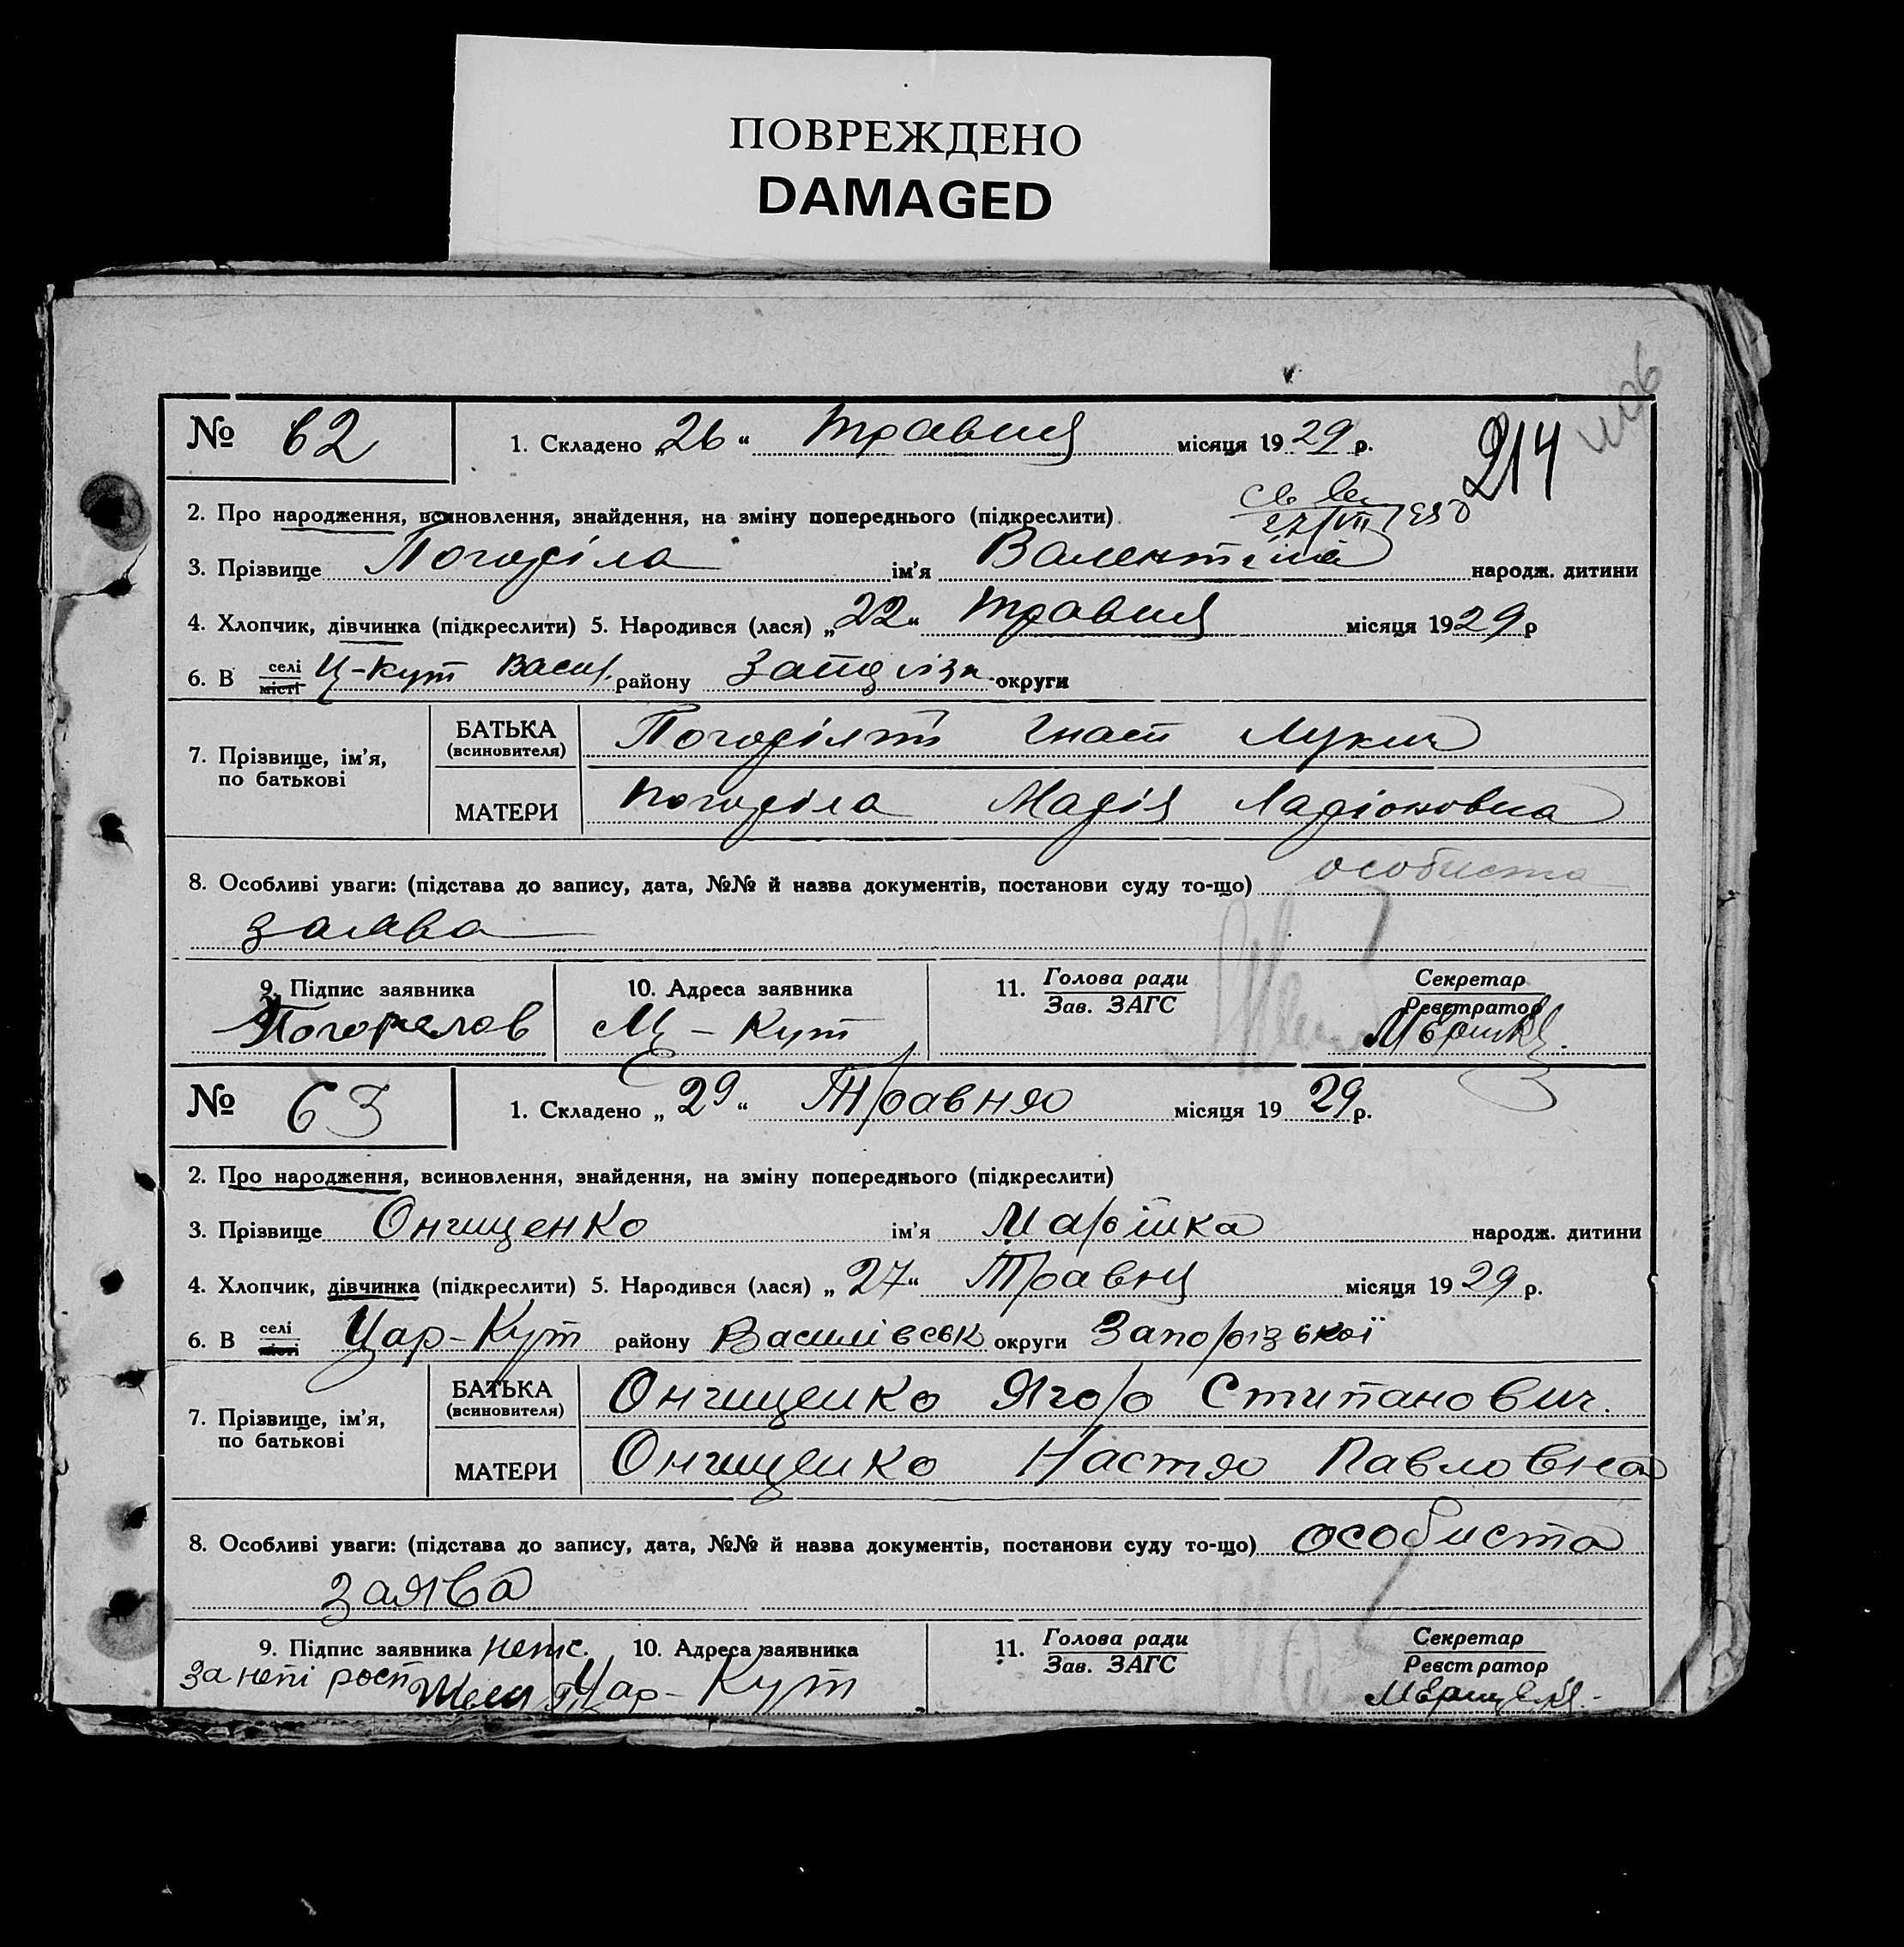 ПОВРЕЖДЕНО
DAMAGED
№ 62 1. Складено „26“ травня місяця 1929 р. 214
2. Про народження, всиновлення, знайдення, на зміну попереднього (підкреслити)
3. Прізвище Погоріла ім'я Валентина народж. дитини
4. Хлопчик, дівчинка (підкреслити) 5. Народився (лася) „22“ травня місяця 1929 р
6. В селі місті Ц-Кут Васил. району Запоріз. округи
7. Прізвище, ім'я, по батькові
БАТЬКА (всиновителя) Гнат Лукич
МАТЕРИ Погоріла Марія Ларіоновна
8. Особливі уваги: (підстава до запису, дата, №№ й назва документів, постанови суду то-що) особиста
заява
9. Підпис заявника 10. Адреса заявника 11. Голова ради Зав. ЗАГС Секретар Реєстратор
Погорелов Ц-Кут
№ 63 1. Складено „29“ Травня місяця 1929 р.
2. Про народження, всиновлення, знайдення, на зміну попереднього (підкреслити)
3. Прізвище Онищенко ім'я народж. дитини
4. Хлопчик, дівчинка (підкреслити) 5. Народився (лася) „27“ Травня місяця 1929 р.
6. В селі місті Цар-Кут району Василівськ округи Запорізької
7. Прізвище, ім'я, по батькові
БАТЬКА (всиновителя) Онищенко Ягор Стипанович.
МАТЕРИ Онищенко Настя Павловна
8. Особливі уваги: (підстава до запису, дата, №№ й назва документів, постанови суду то-що) особиста
заява
9. Підпис заявника 10. Адреса заявника 11. Голова ради Зав. ЗАГС Секретар Реєстратор
За неї Цар-Кут